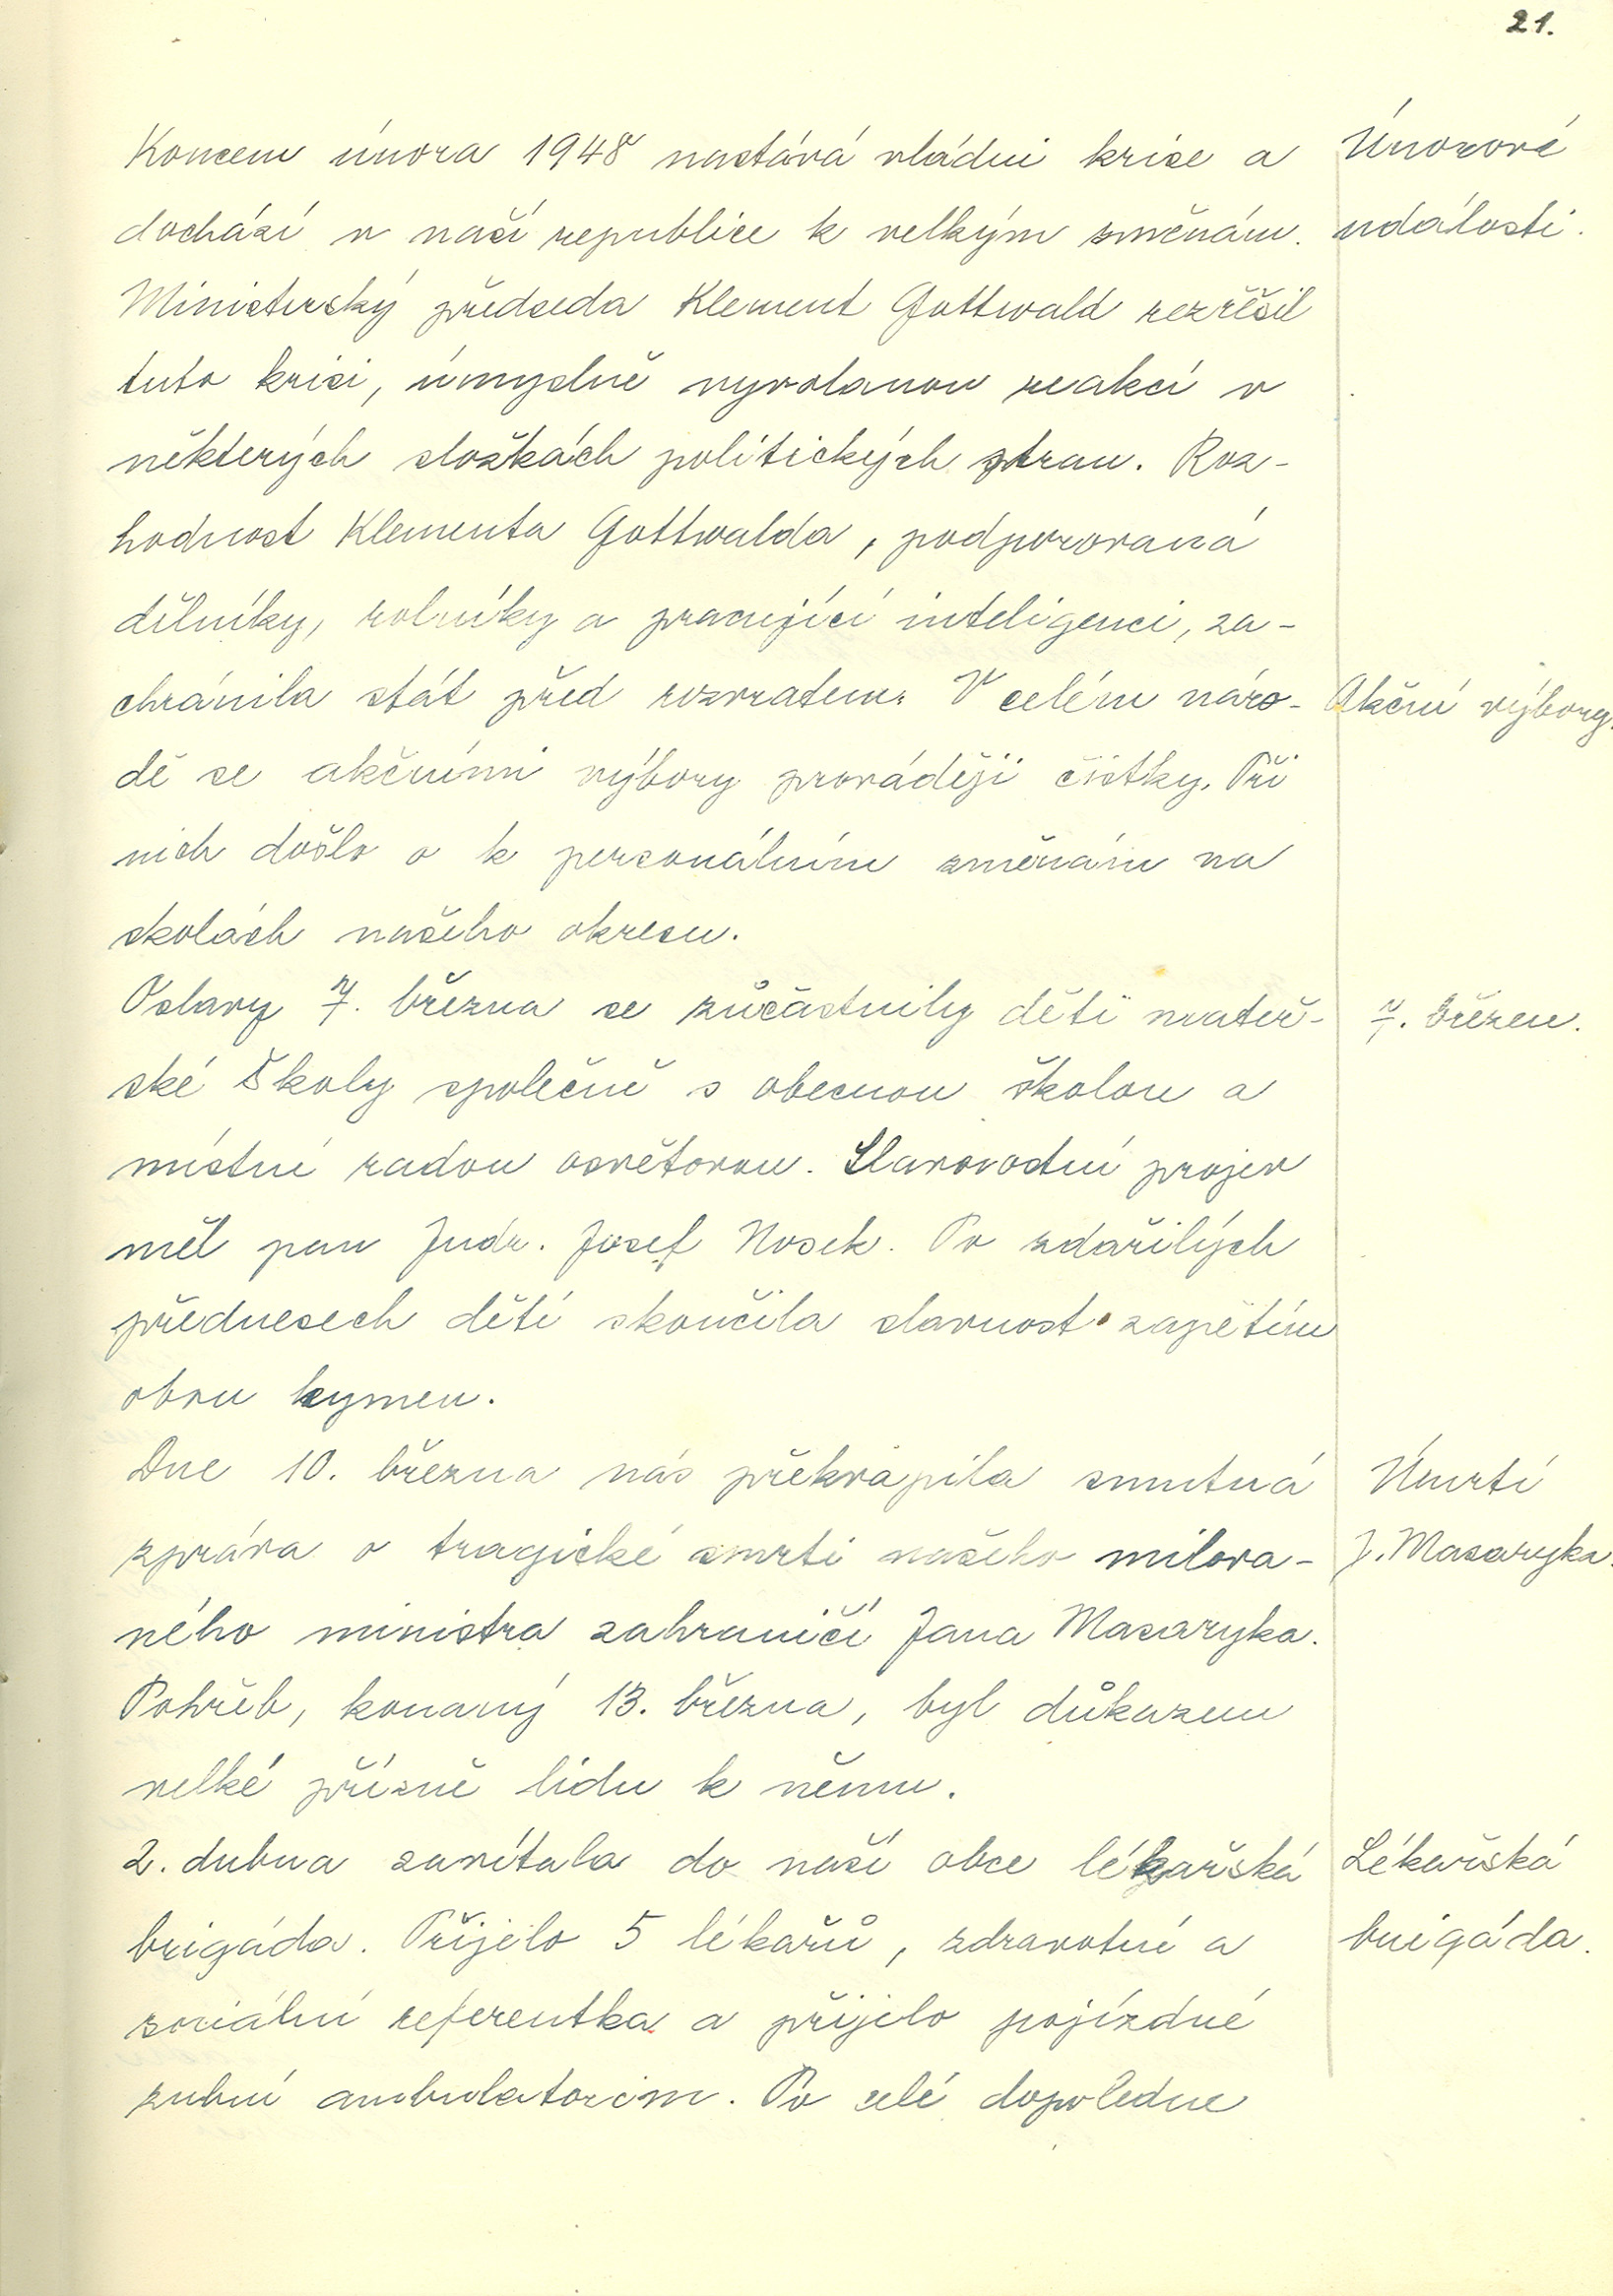 21.
Koncem února 1948 nastává vládní krise a
Únorové
dochází v naší republice k velkým změnám.
události.
Ministerský předseda Klement Gottwald rozřešil
tuto krisi, úmyslně vyvolanou reakcí v
některých složkách politických stran. Roz-
hodnost Klementa Gottwalda, podporovaná
dělníky, rolníky a pracující inteligencí, za-
chránila stát před rozvratem. V celém náro-
Akční výbory.
dě se akčními výbory provádějí čistky. Při
nich došlo a k personálním změnám na
školách našeho okresu.
Oslavy 7. března se zúčastnily děti mateř-
7. březen.
ské školy společně s obecnou školou a
místní radou osvětovou. Slavnostní projev
měl pan Judr. Josef Nosek. Po zdařilých
přednesech dětí skončila slavnost zapětím
obou hymen.
Dne 10. března nás překvapila smutná
Úmrtí
zpráva o tragické smrti našeho milova-
J. Masaryka.
ného ministra zahraničí Jana Masaryka.
Pohřeb, konaný 13. března, byl důkazem
velké přízně lidu k němu.
2. dubna zavítala do naší obce lékařská
Lékařská
brigáda. Přijelo 5 lékařů, zdravotní a
brigáda.
sociální referentka a přijelo pojízdné
zubní ambulatorium. Po celé dopoledne